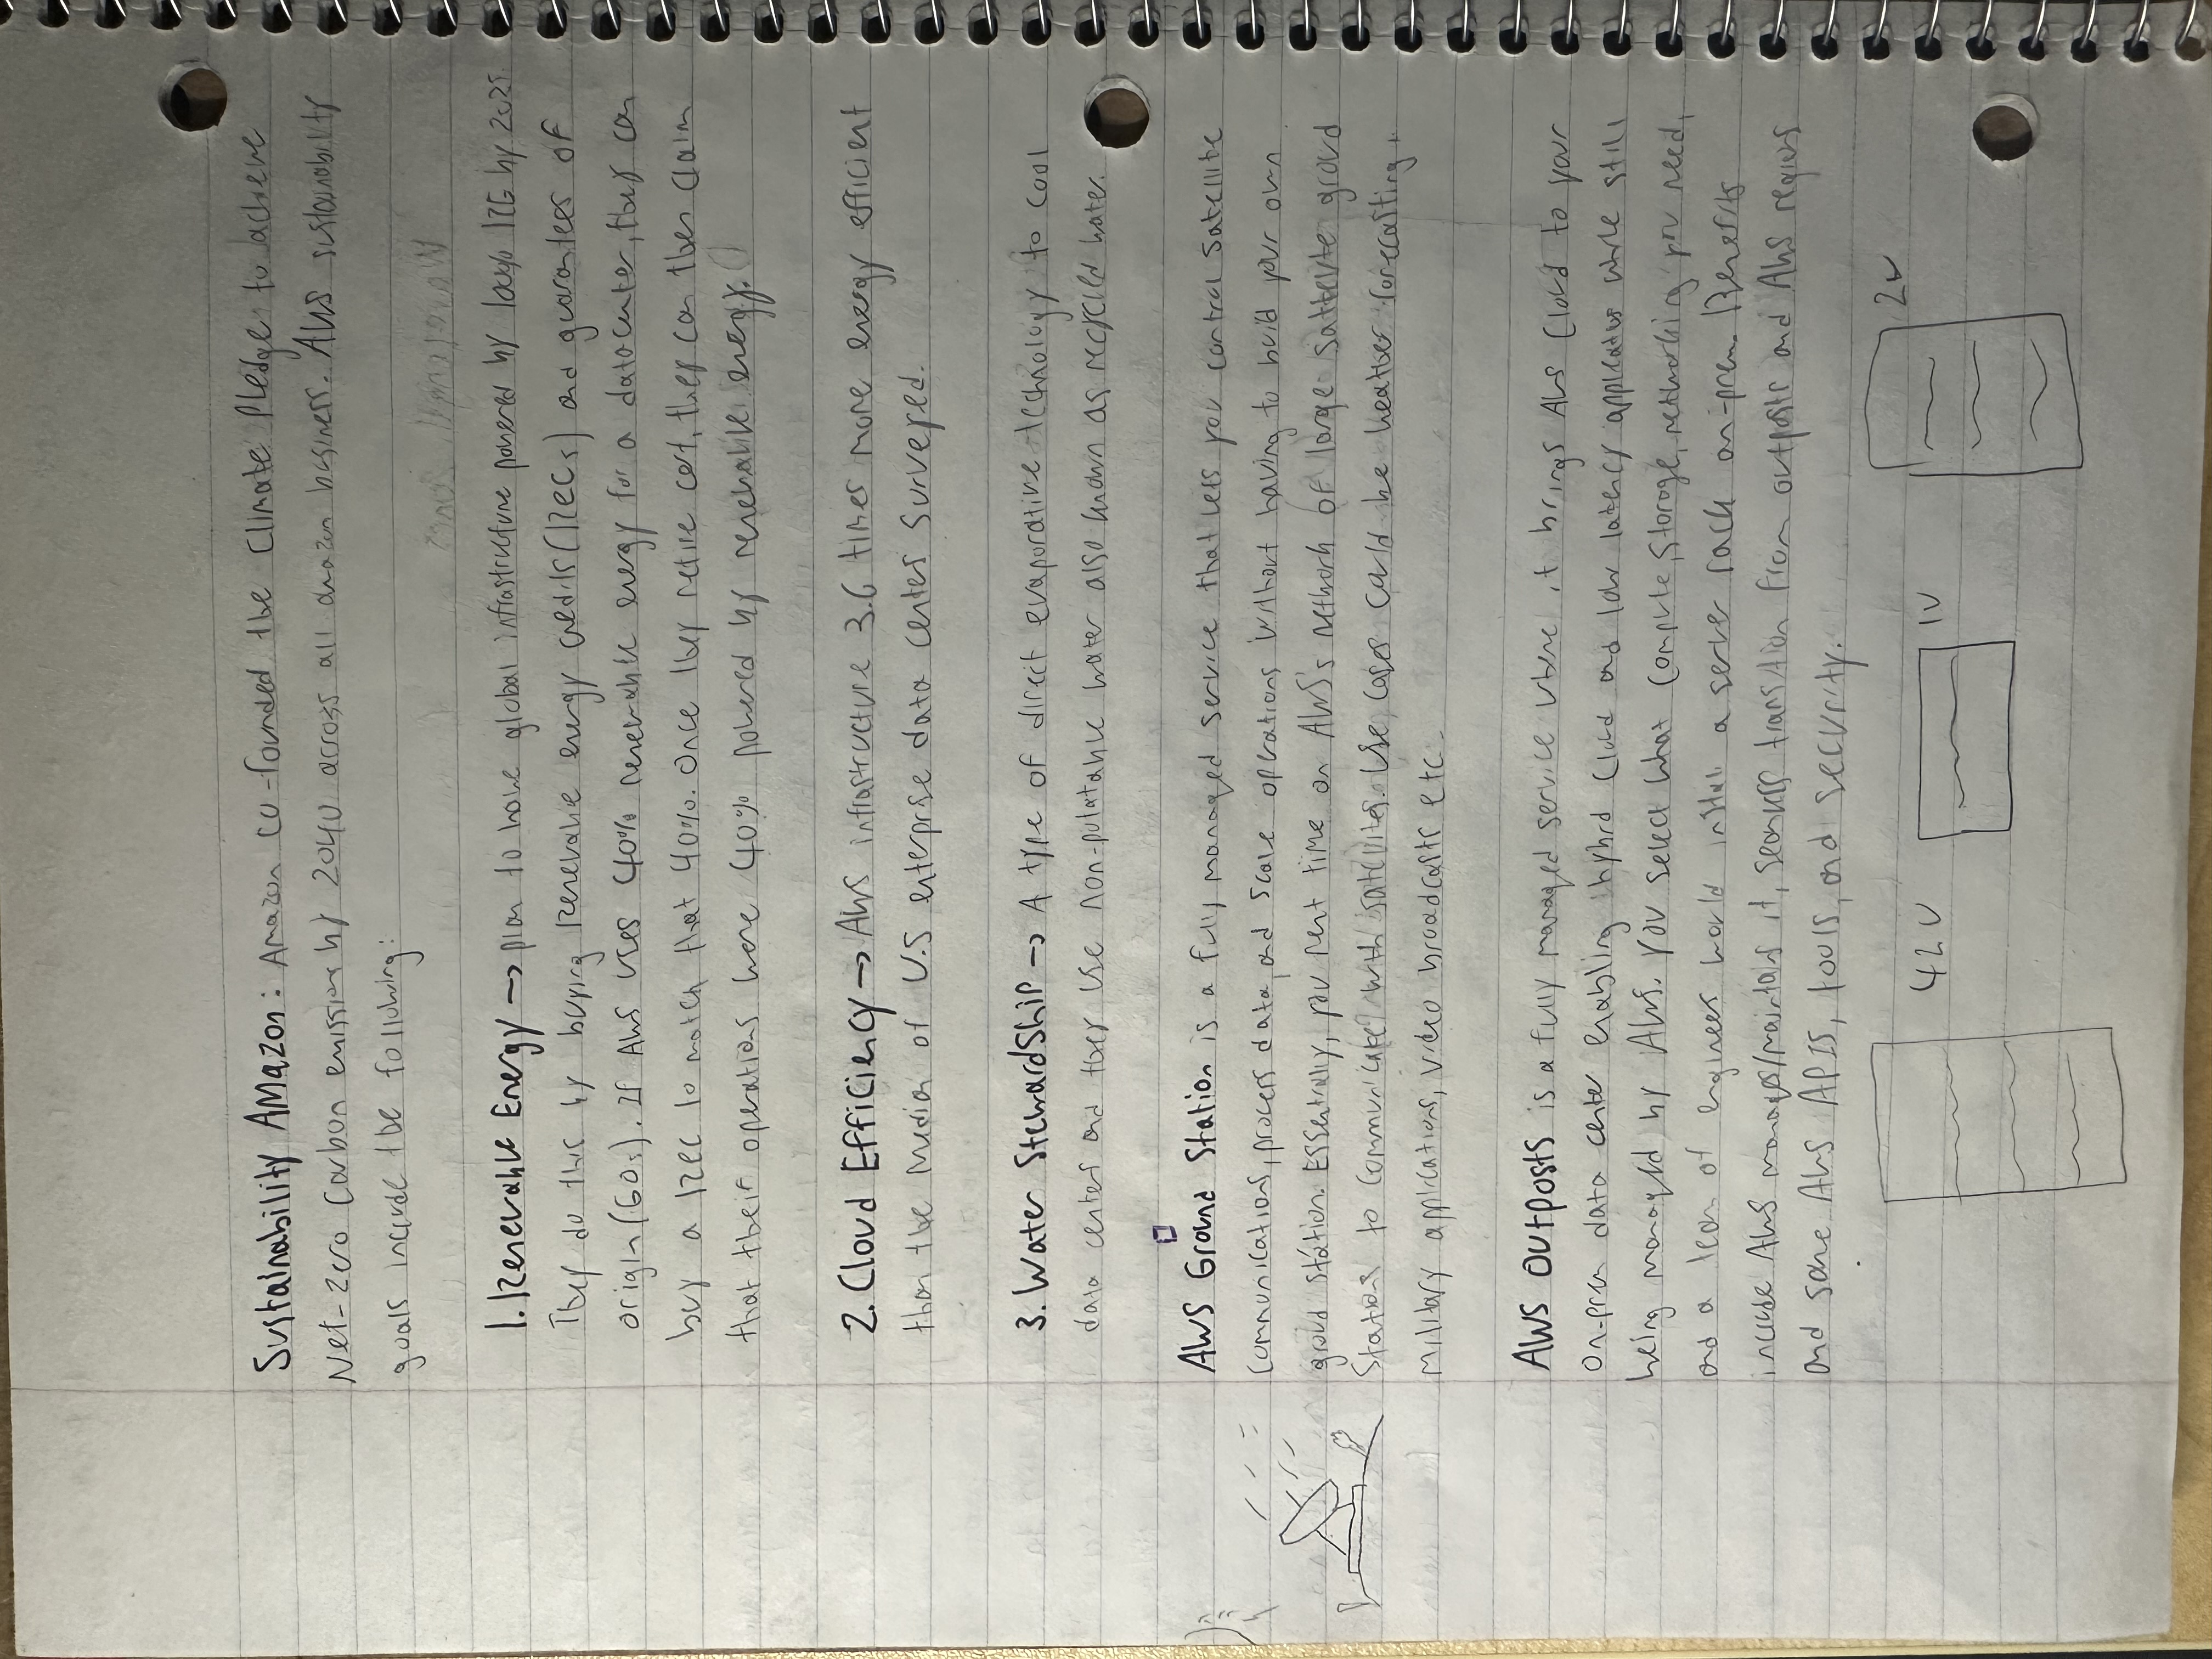 Sustainability Amazon: Amazon co-founded the Climate Pledge to achieve
Net-zero Carbon emission by 2040 across all amazon business. AWS sustainability
goals include the following:
1. Renewable Energy → plan to have global infrastructure powered by 100% RE by 2025.
They do this by buying Renewable energy credits (RECs) and guarantees of
origin (GOs). If AWS uses 40% renewable energy for a datacenter, they can
buy a REC to match that 40%. Once they retire cert, they can then claim
that their operations were 40% powered by renewable energy.
2. Cloud Efficiency → AWS infrastructure 3.6 times more energy efficient
than the Median of U.S enterprise data centers surveyed.
3. Water Stewardship → A type of direct evaporative technology to cool
data centers and they use non-polatable water also known as recycled water.
AWS Ground Station is a fully managed service that lets you control satellite
communications, process data, and scale operations without having to build your own
groud station. Essentially, you rent time on AWS's network of large sattelite groud
Stations to communicate with satellites. Use cases could be weather forecasting,
military applications, video broadcasts etc.
AWS Outposts is a fully managed service where it brings AWS Cloud to your
on-prem data center enabling hybrid cloud and low latency applications while still
being managed by AWS. You select what compute, storage, networking you need,
and a team of engineers would install a server rack on-prem. Benefits
include AWS manages/maintains it, seamless transition from outposts and AWS regions
and same AWS APIs, tools, and security.
42U 1U 2U